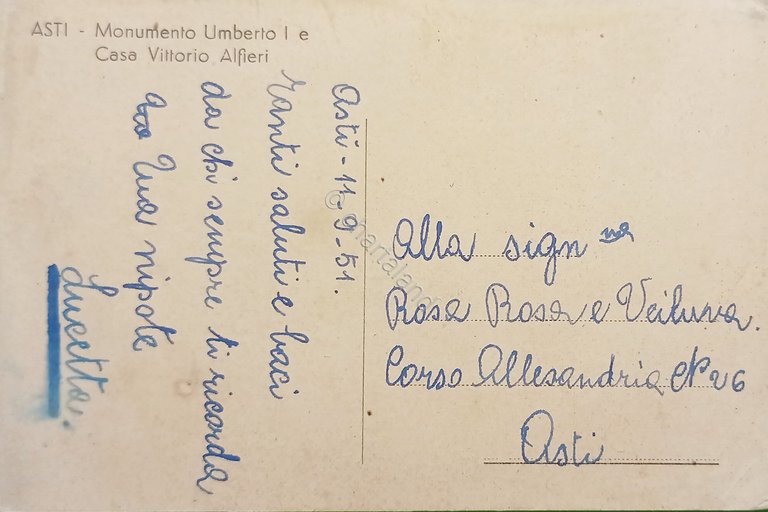 ASTI - Monumento Umberto I e
Casa Vittorio Alfieri
Asti - 11-9-51.
Tanti saluti e baci
da chi sempre ti ricorda
Tua nipote
Lucetta.
Alla sign na
Rosa Rosa e
Corso Allesandria N° 26
Asti
© chartaland